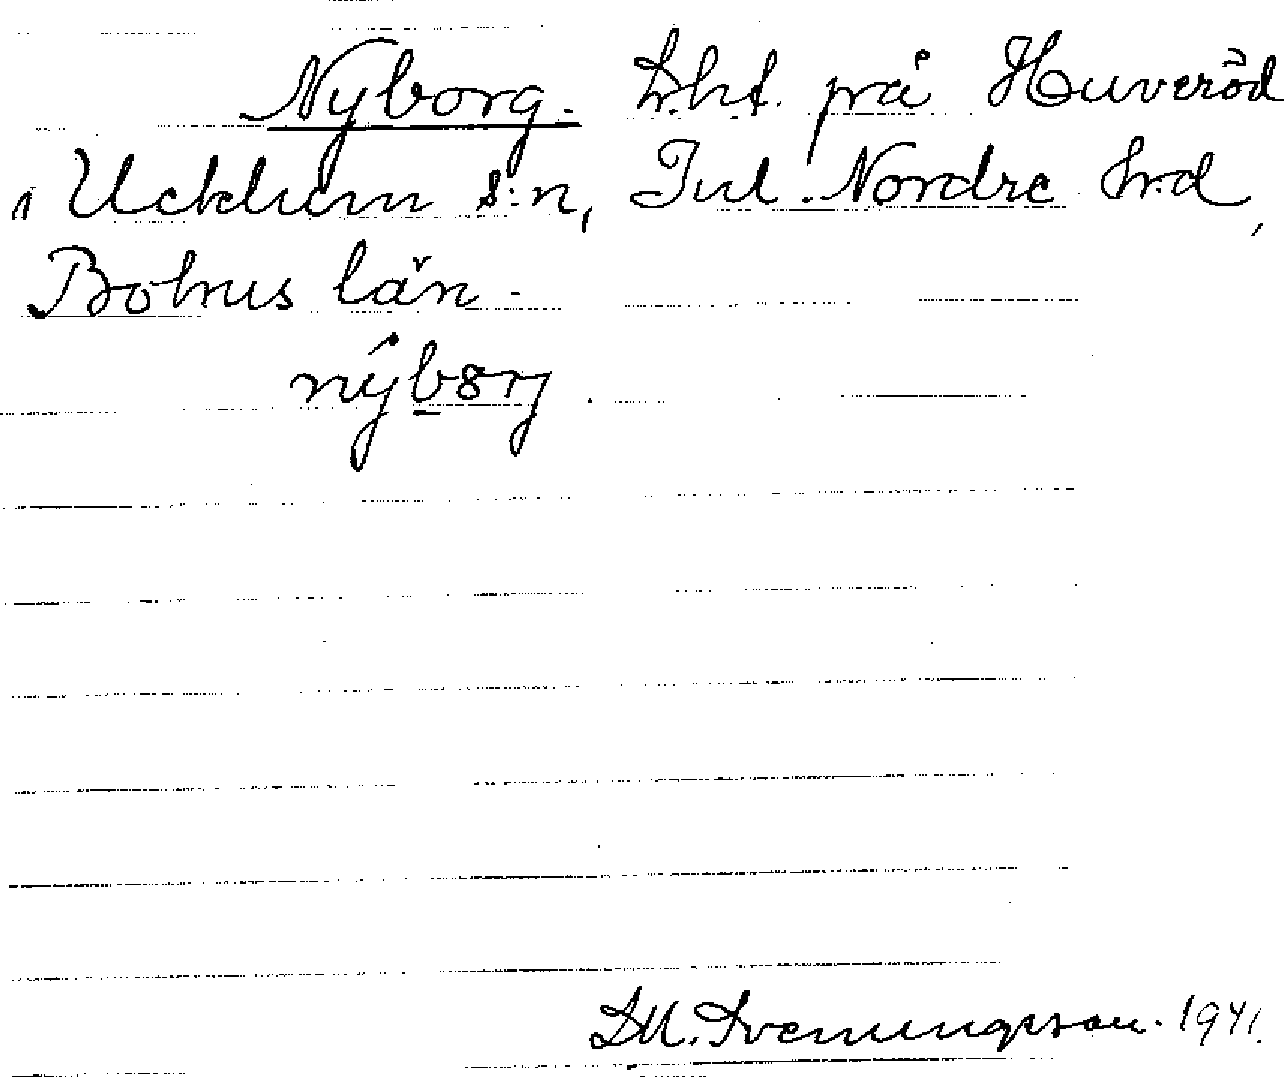 Nyborg. Lht. på Huveröd
i Ucklum s:n, Inl. Nordre hrd,
Bohus län.
nýbɔrj
M. Svenungsson. 1941.